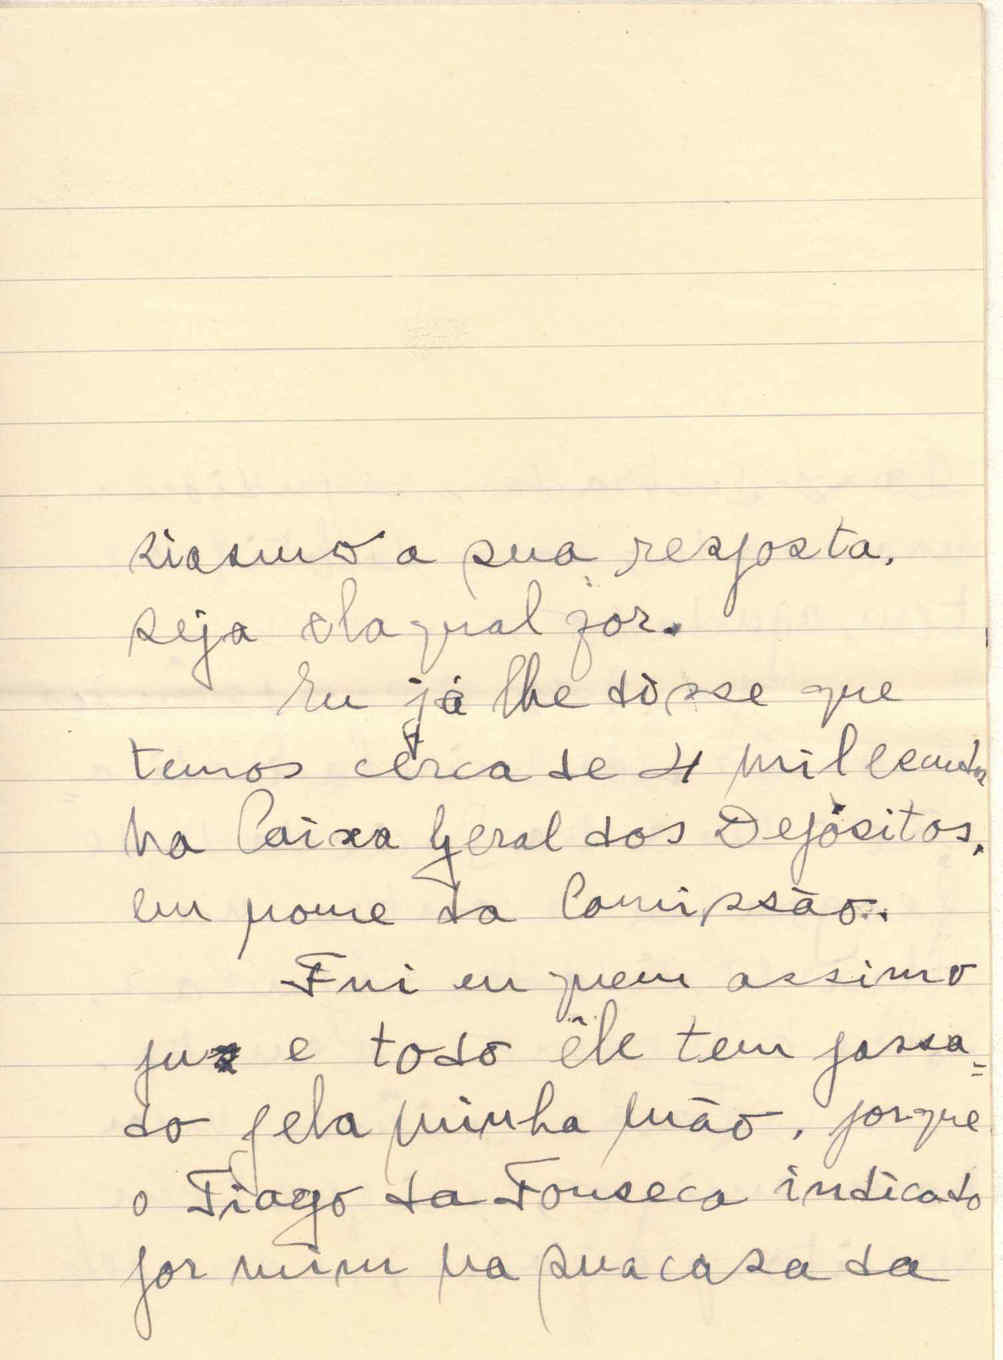 siasmo a sua resposta,
seja ela qual fôr.
Eu já lhe disse que
temos cêrca de 4 mil escudos
na Caixa Geral dos Depósitos,
em nome da Comissão.
Fui eu quem assim o
fuz e todo êle tem passa=
do pela minha mão, porque
o Tiago da Fonseca indicado
por mim na sua casa da